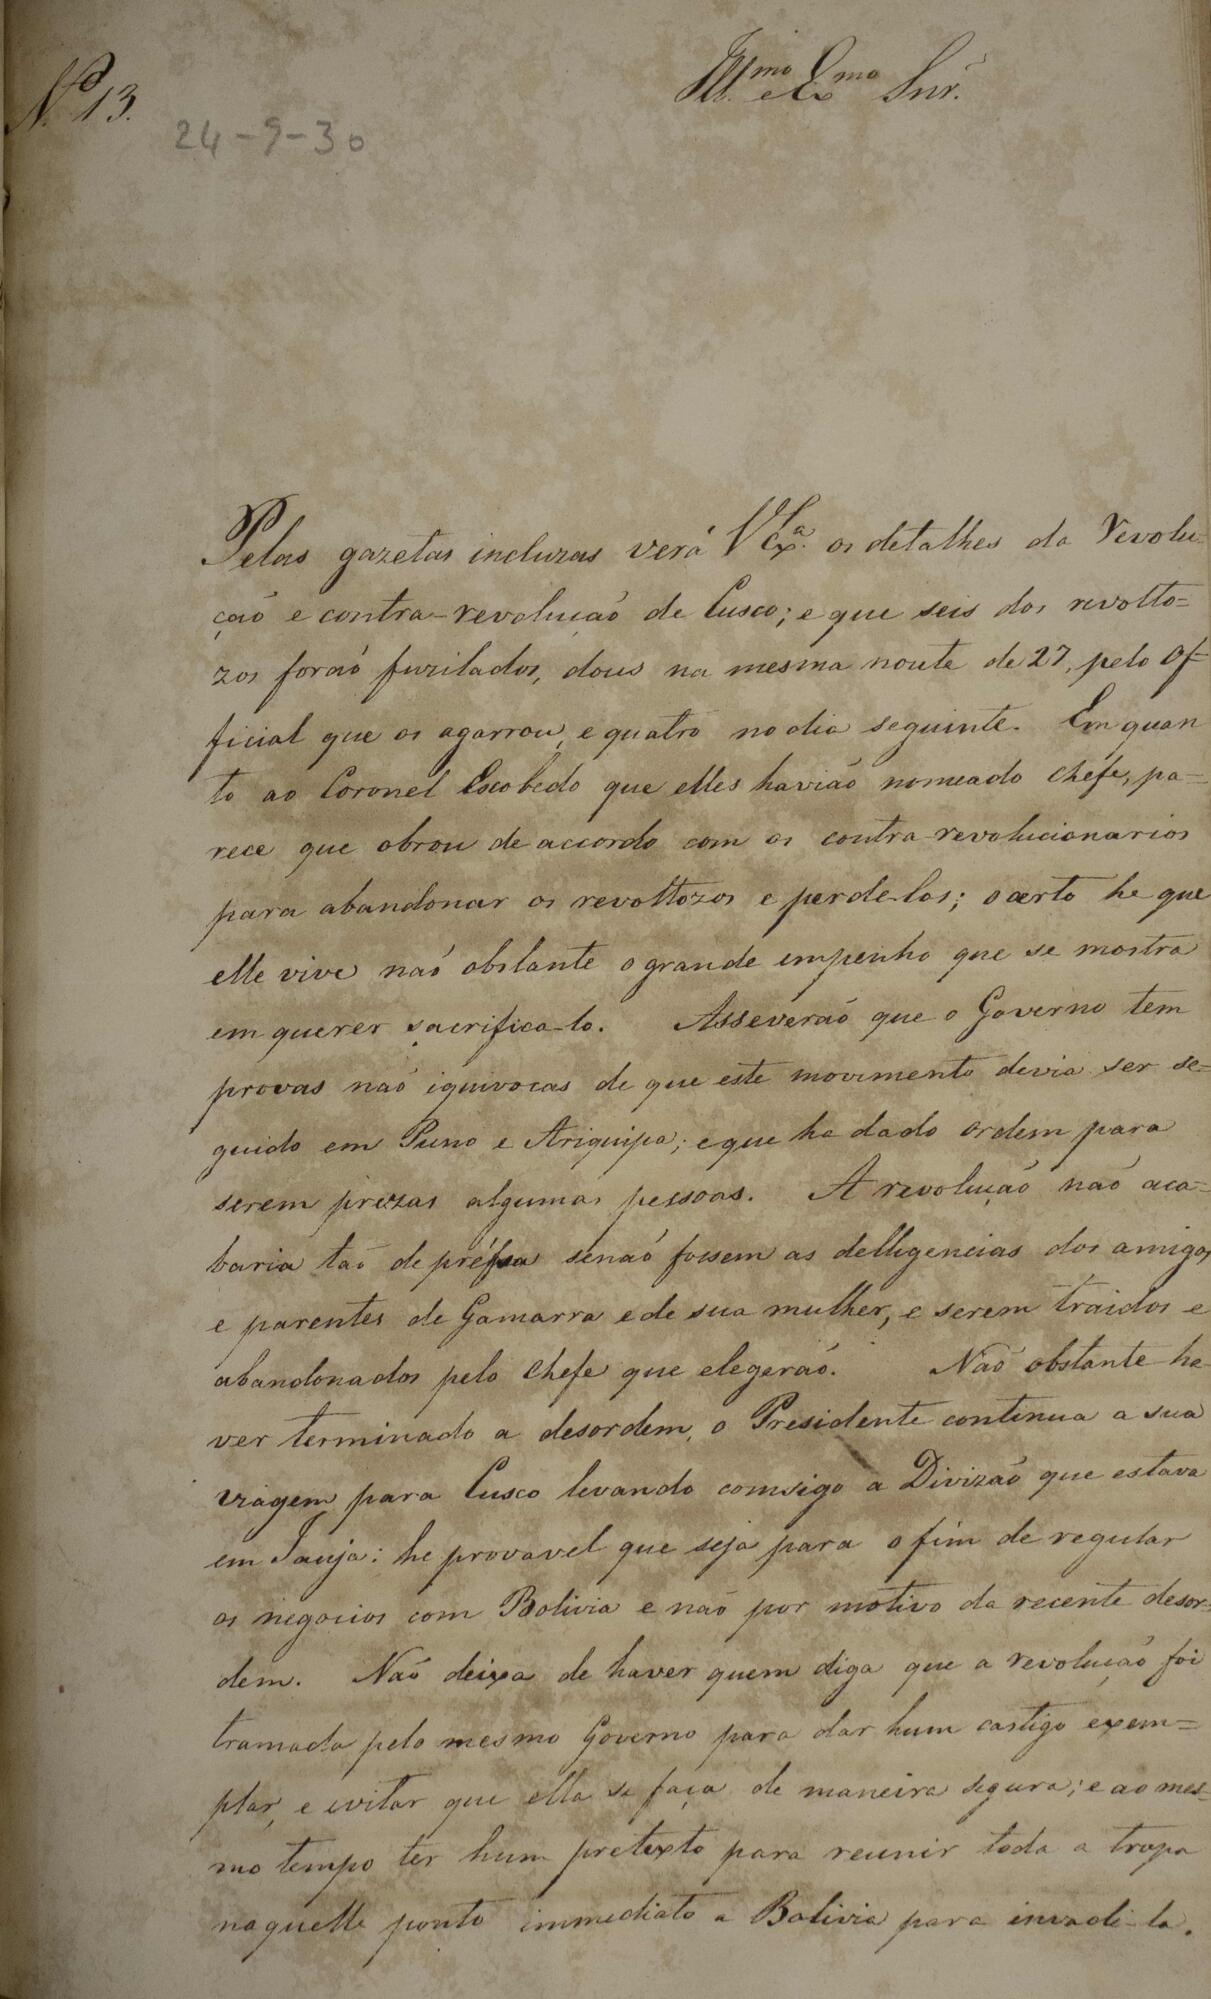 N.º 13.
Ill.mo e Ex.mo Snr.
24-9-30
Pelas gazetas incluzas verá V Ex.ª os detalhes da revolu-
ção e contra-revolução de Cusco; e que seis dos revolto=
zos foraõ fuzilados, dous na mesma noute de 27, pelo Of=
ficial que os agarrou, e quatro no dia seguinte. Em quan
to ao Coronel Escobedo que elles haviaõ nomeado chefe, pa=
rece que obrou de accordo com os contra-revolucionarios
para abandonar os revoltozos e perde-los; o certo he que
elle vive naõ obstante o grande empenho que se mostra
em querer sacrifica-lo. Asseveraõ que o Governo tem
provas naõ iquivocas de que este movimento devia ser se=
guido em Puno e Ariquipa; e que ha dado ordem para
serem prezas algumas pessoas. A revoluçaõ naõ aca=
baria taõ depréssa senaõ fossem as delligencias dos amigos
e parentes de Gamarra e de sua mulher, e serem traidos e
abandonados pelo chefe que elegeraõ. Naõ obstante ha-
ver terminado a desordem, o Presidente continua a sua
viagem para Cusco levando comsigo a Divizaõ que estava
em Jauja: he provavel que seja para o fim de regular
os negocios com Bolivia e naõ por motivo da recente desor-
dem. Naõ deixa de haver quem diga que a revoluçaõ foi
tramada pelo mesmo Governo para dar hum castigo exem=
plar, e evitar que ella se faça de maneira segura; e ao mes-
mo tempo ter hum pretexto para reunir toda a tropa
naquelle ponto immediato a Bolivia para invadi-la.